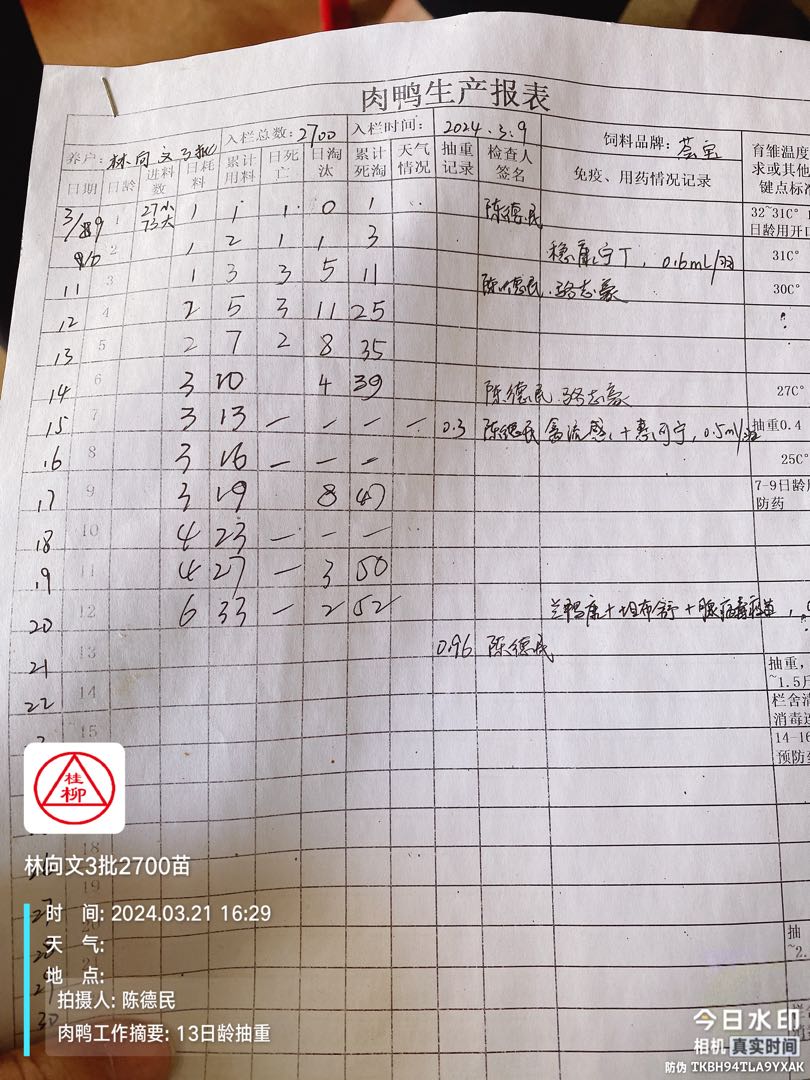 肉鸭生产报表
养户: 林向文3批 入栏总数: 2700 入栏时间: 2024.3.9 饲料品牌:
日期 日龄 进料数 日耗料 累计用料 日死亡 日淘汰 累计死淘 天气情况 抽重记录 检查人签名 免疫、用药情况记录 育雏温度
求或其他
键点标准
3/9 1 27小 73大 1 1 1 0 1 陈德民 32~31C°
日龄用开口
10 2 1 2 1 1 3 稳康宁丁, 0.6ml/羽 31C°
11 3 1 3 3 5 11 陈德民.骆志豪 30C°
12 4 2 5 3 11 25
13 5 2 7 2 8 35
14 6 3 10 4 39 陈德民.骆志豪 27C°
15 7 3 13 — — — — 0.3 陈德民 禽流感 + 0.5ml/羽 抽重0.4
16 8 3 16 — — — 25C°
17 9 3 19 8 47 7-9日龄
防药
18 10 4 23 — — —
19 11 4 27 — 3 50
20 12 6 33 — 2 52
21 13 0.96 陈德民
22 14 抽重,
~1.5斤
栏舍清
消毒
15 14-16
预防
18
19
20
30
抽
~2.
桂柳
林向文3批2700苗
时 间: 2024.03.21 16:29
天 气:
地 点:
拍摄人: 陈德民
肉鸭工作摘要: 13日龄抽重
今日水印
相机 真实时间
防伪 TKBH94TLA9YXAK